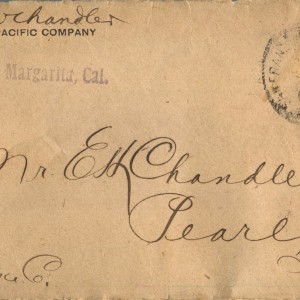 Chandler
PACIFIC COMPANY
Margarita, Cal.
Mr. E H Chandle
Pearl
C.